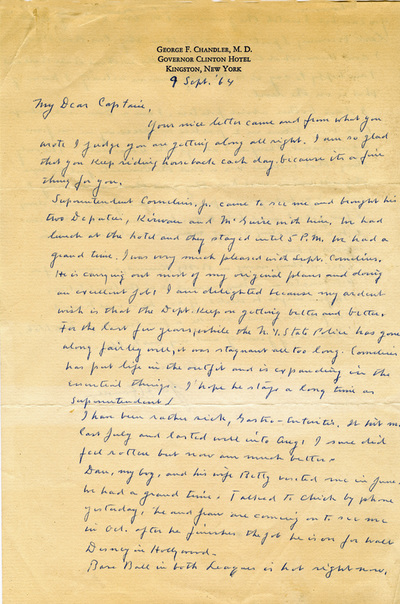 GEORGE F. CHANDLER, M. D.
GOVERNOR CLINTON HOTEL
KINGSTON, NEW YORK
9 Sept. '64
My Dear Captain,
Your nice letter came and from what you
wrote I judge you are getting along all right. I am so glad
that you keep riding horseback each day because its a fine
thing for you.
Superintendent Cornelius, jr. came to see me and brought his
two Deputies, Kirwan and McGuire with him. We had
lunch at the hotel and they stayed until 5 P.M. We had a
grand time. I was very much pleased with Supt. Cornelius.
He is carrying out most of my original plans and doing
an excellent job. I am delighted because my ardent
wish is that the Dept. Keep on getting better and better.
For the last few years, while the N.Y. State Police has gone
along fairly well, it was stagnant all too long. Cornelius
has put life in the outfit and is expanding in the
essential things. I hope he stays a long time as
Superintendent!
I have been rather sick, Gastro-enteritis. It hit me
last July and lasted well into Aug. I sure did
feel rotten but now am much better.
Dan, my boy, and his wife Betty visited me in June.
We had a grand time. I talked to Chick by phone
yesterday, he and are coming on to see me
in Oct. after he finishes the job he is on for Walt
Disney in Hollywood.
Base Ball in both Leagues is hot right now.